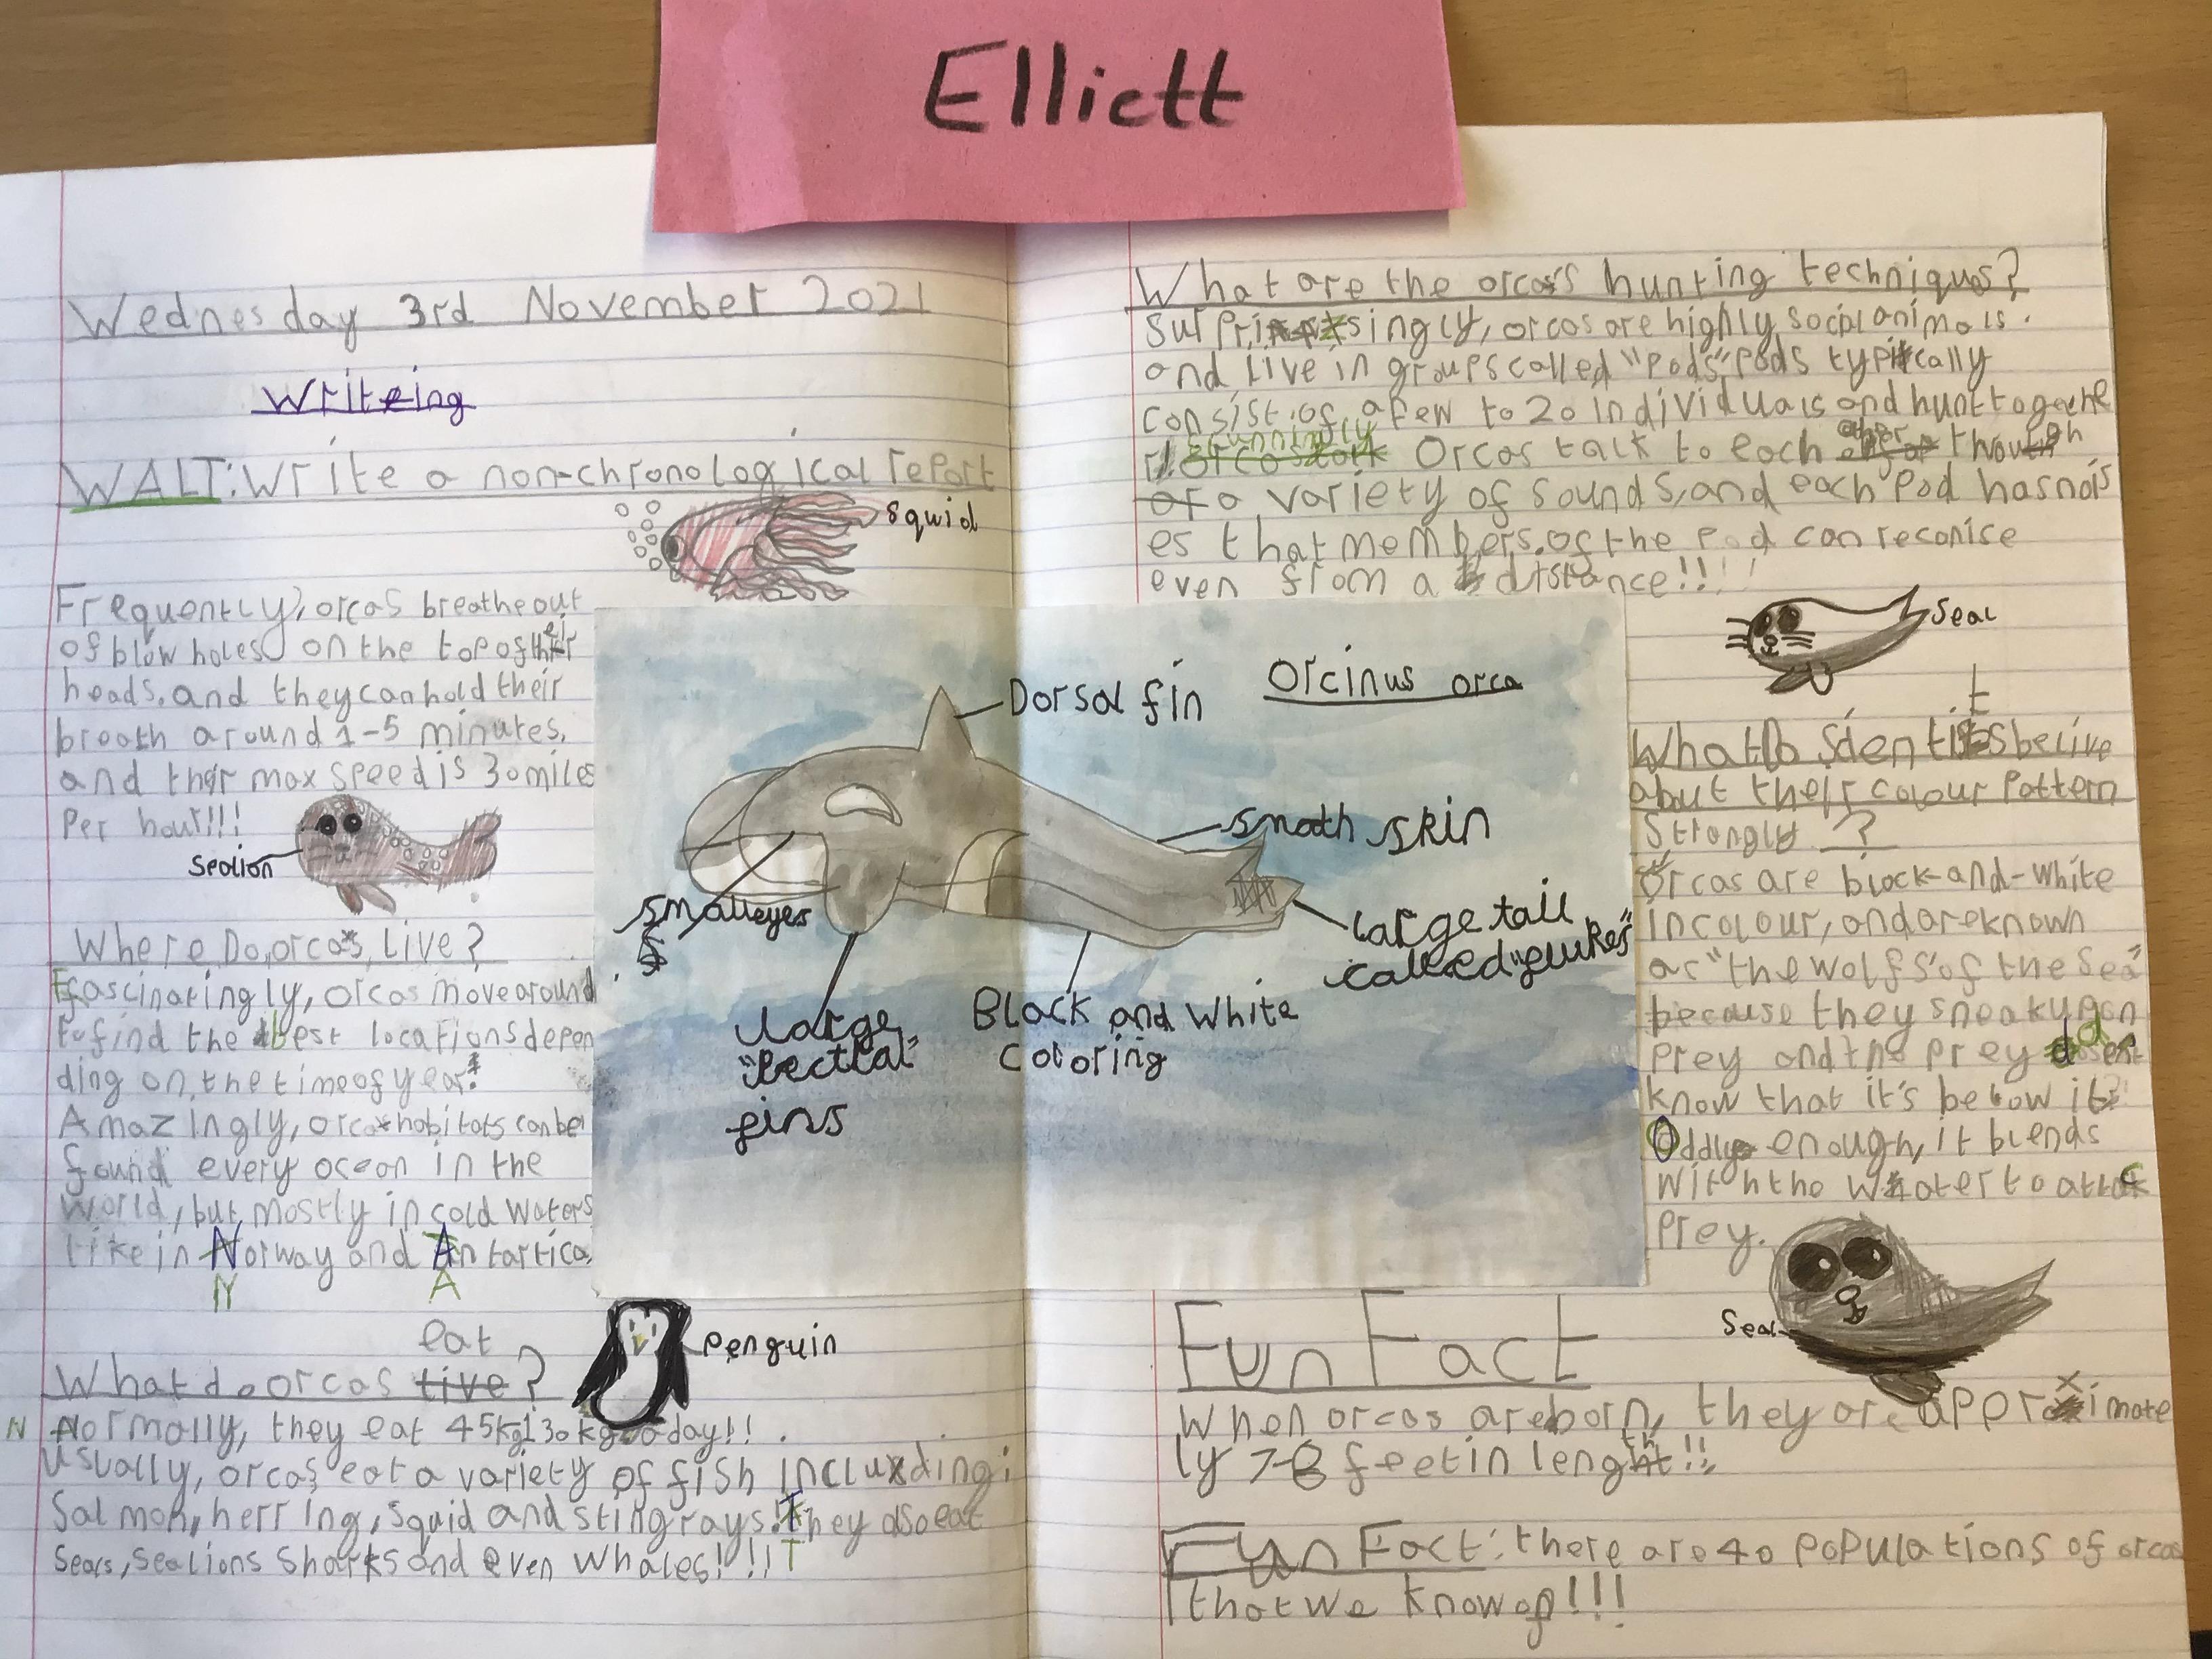 Elliott
Wednesday 3rd November 2021
Writeing
WALT: Write a non-chronological report
squid
Frequently, orcas breathe out
of blow holes on the top of their
heads, and they can hold their
breath around 1-5 minutes,
and their max speed is 30 miles
Per hour!!!
Sealion
Where Do orcas Live?
Fascinatingly, orcas move around
to find the best locations depen
ding on the time of year!
Amazingly, orca habitats can be
found every ocean in the
world, but mostly in cold waters
like in Norway and Antartica,
N A
eat
What do orcas live?
Penguin
N Normally, they eat 45kg 130kg a day!!
Usually, orcas eat a variety of fish Including:
Salmon, herring, squid and stingrays! They also eat
Sears, sealions sharks and even whales!!!
T
Dorsal fin
Orcinus orca
smoth skin
small eyes
large tail
called "flukes"
Large
"Pectral"
fins
Black and White
coloring
What are the orca's hunting techniques?
Surprisingly, orcas are highly social animals.
and live in groups called "Pods" Pods typically
consist of a few to 20 individuals and hunt togethe
r! stunningly Orcas talk to each other though
a variety of sounds, and each Pod has nois
es that members of the Pod can reconise
even from a distance!!!!
Seal
t
What Do Scientists belive
about their colour Pattern
Strongly ?
Orcas are black-and-white
in colour, and are known
as "the wolfs" of the Sea"
because they sneak upon
Prey and the prey dosent
know that it's below it?
Oddly enough, it blends
With the water to attack
Prey.
Seal
Fun Fact
When orcas are born, they are approximate
ly 7-8 feet in length!!
Fun Fact: there are 40 populations of orcas
that we know of!!!